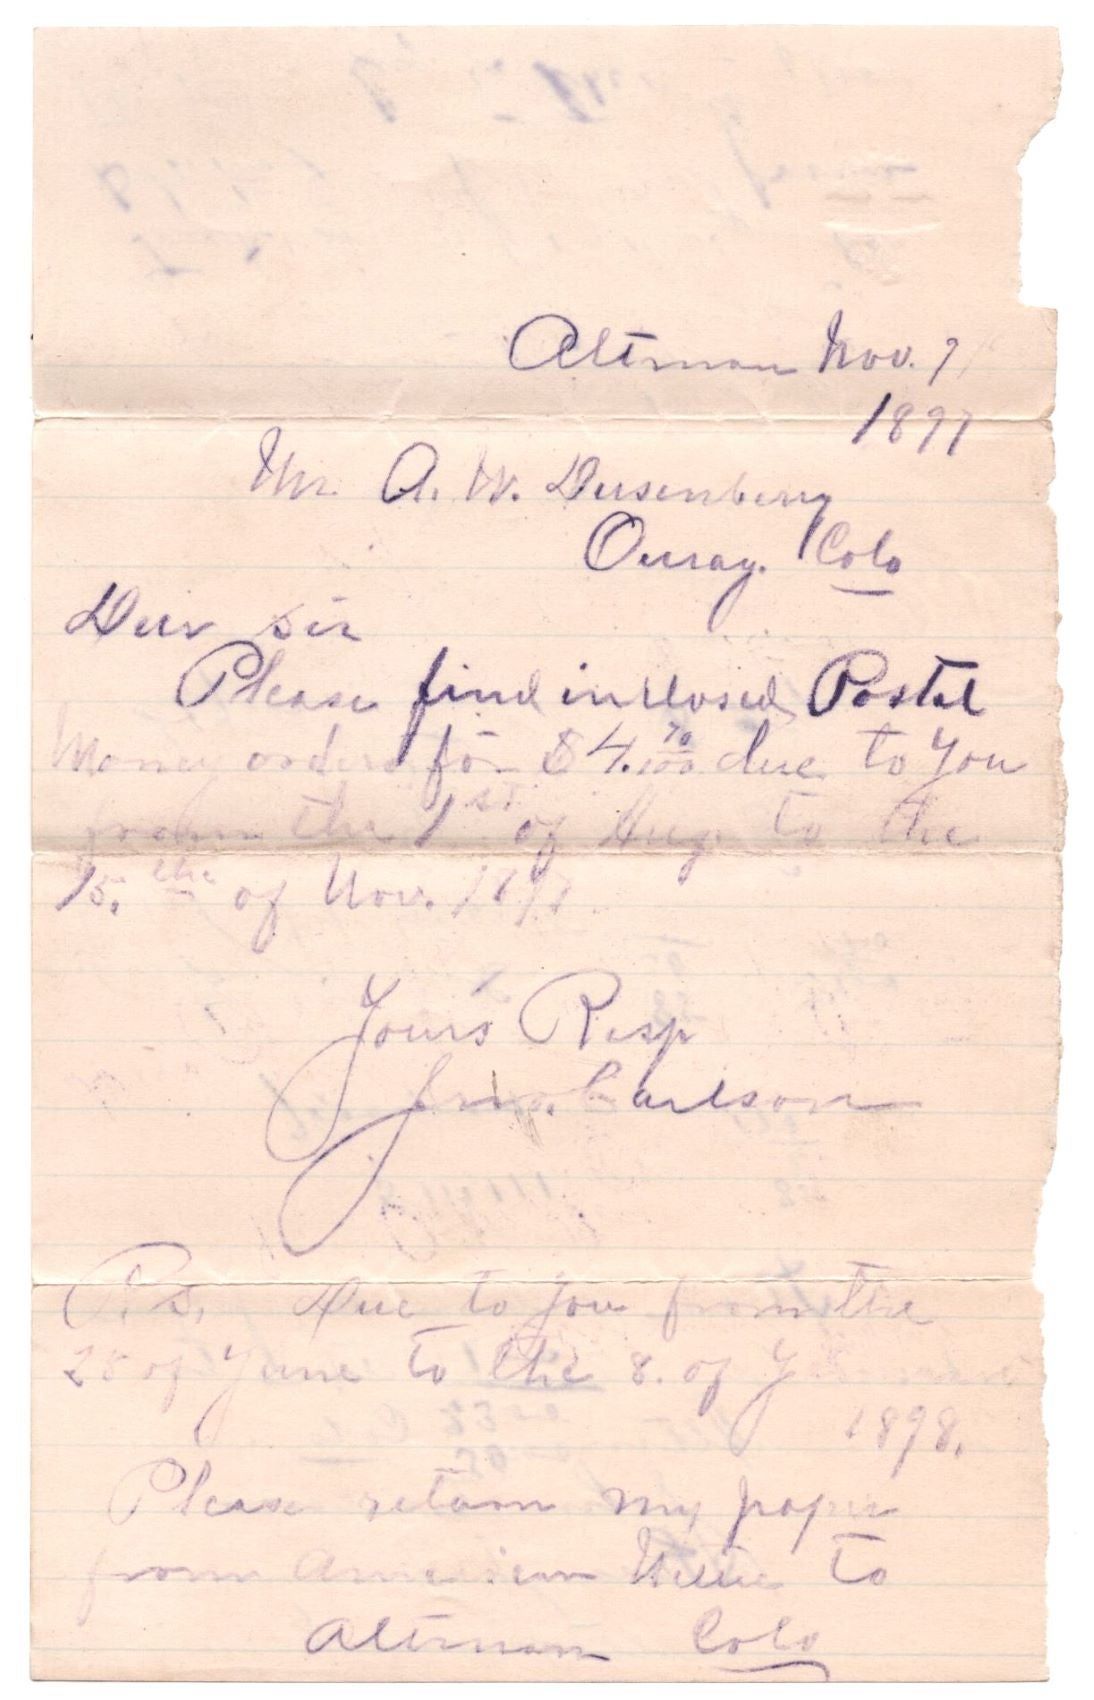 Altman Nov. 7
1897
Mr. A. W. Dusenberry
Ouray. Colo
Deer sir
Please find inclosed Postal
Money orders for $4.70/100 due to you
from the 1st of Aug. to the
15. the of Nov. 1897.
Yours Resp
Jno. Carlson
P.S. Due to you from the
28 of June to the 8. of
1898.
Please return my paper
from American to
Altman Colo